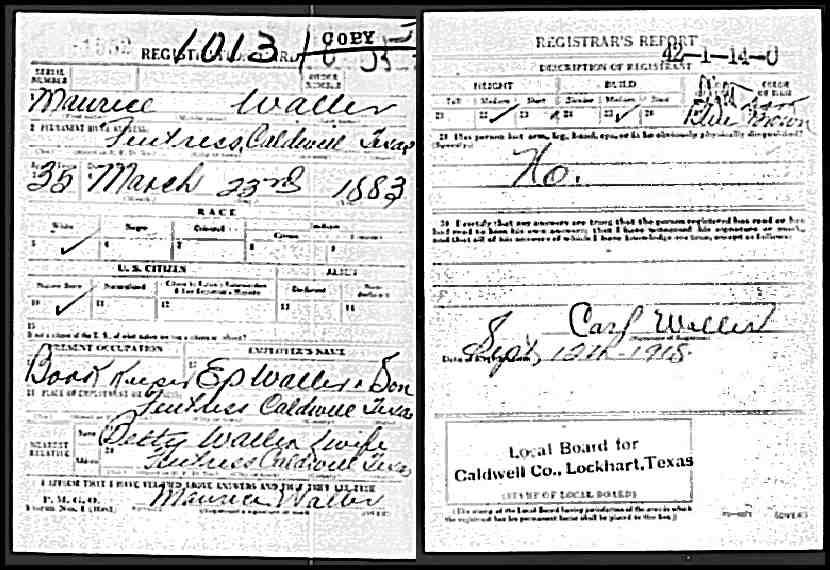 1013
COPY
REGIST
SERIAL NUMBER
ORDER NUMBER
Maurice Waller
Fentress, Caldwell Texas
35 March 23rd 1883
RACE
White Negro
5 6 7 8 9
U. S. CITIZEN ALIEN
10 11 12 13 14
15
PRESENT OCCUPATION EMPLOYER'S NAME
Book Keeper E P Waller & Son
Fentress Caldwell Texas
NEAREST RELATIVE
Name Betty Waller wife
Fentress Caldwell Texas
I AFFIRM THAT I HAVE VERIFIED ABOVE ANSWERS AND THAT THEY ARE TRUE
P. M. G. O.
Form No. 1 (Red)
Maurice Waller
REGISTRAR'S REPORT
42-1-14-C
DESCRIPTION OF REGISTRANT
HEIGHT BUILD
Tall Medium Short Slender Medium Stout
21 22 23 24 25 26
Blue Brown
29 Has person lost arm, leg, hand, eye, or is he obviously physically disqualified?
(Specify.)
No.
30 I certify that my answers are true; that the person registered has read or has
had read to him his own answers; that I have witnessed his signature or mark,
and that all of his answers of which I have knowledge are true, except as follows:
Carl Waller
Date of Registration Sept 12th-1918
Local Board for
Caldwell Co., Lockhart, Texas
(STAMP OF LOCAL BOARD)
(The stamp of the Local Board having jurisdiction of the area in which
the registrant has his permanent home shall be placed in this box.)
(OVER)